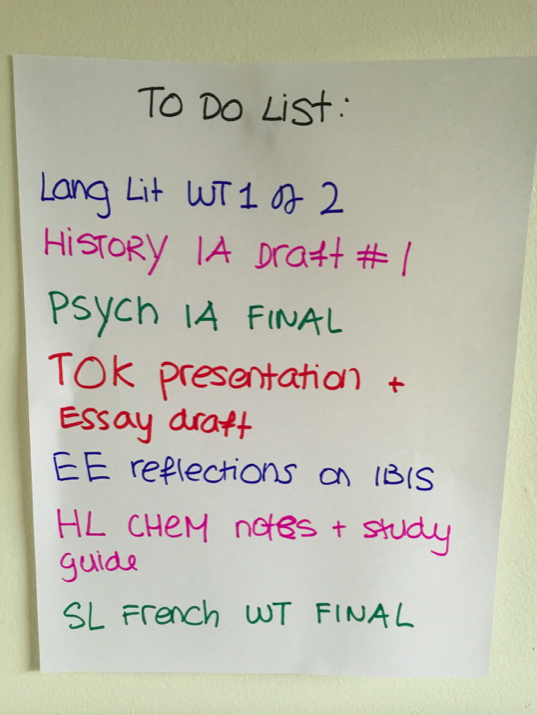 TO DO List:
Lang Lit WT 1 of 2
HISTORY IA Draft # 1
PSych IA FINAL
TOK presentation +
Essay draft
EE reflections on IBIS
HL CHEM notes + study
guide
SL French WT FINAL